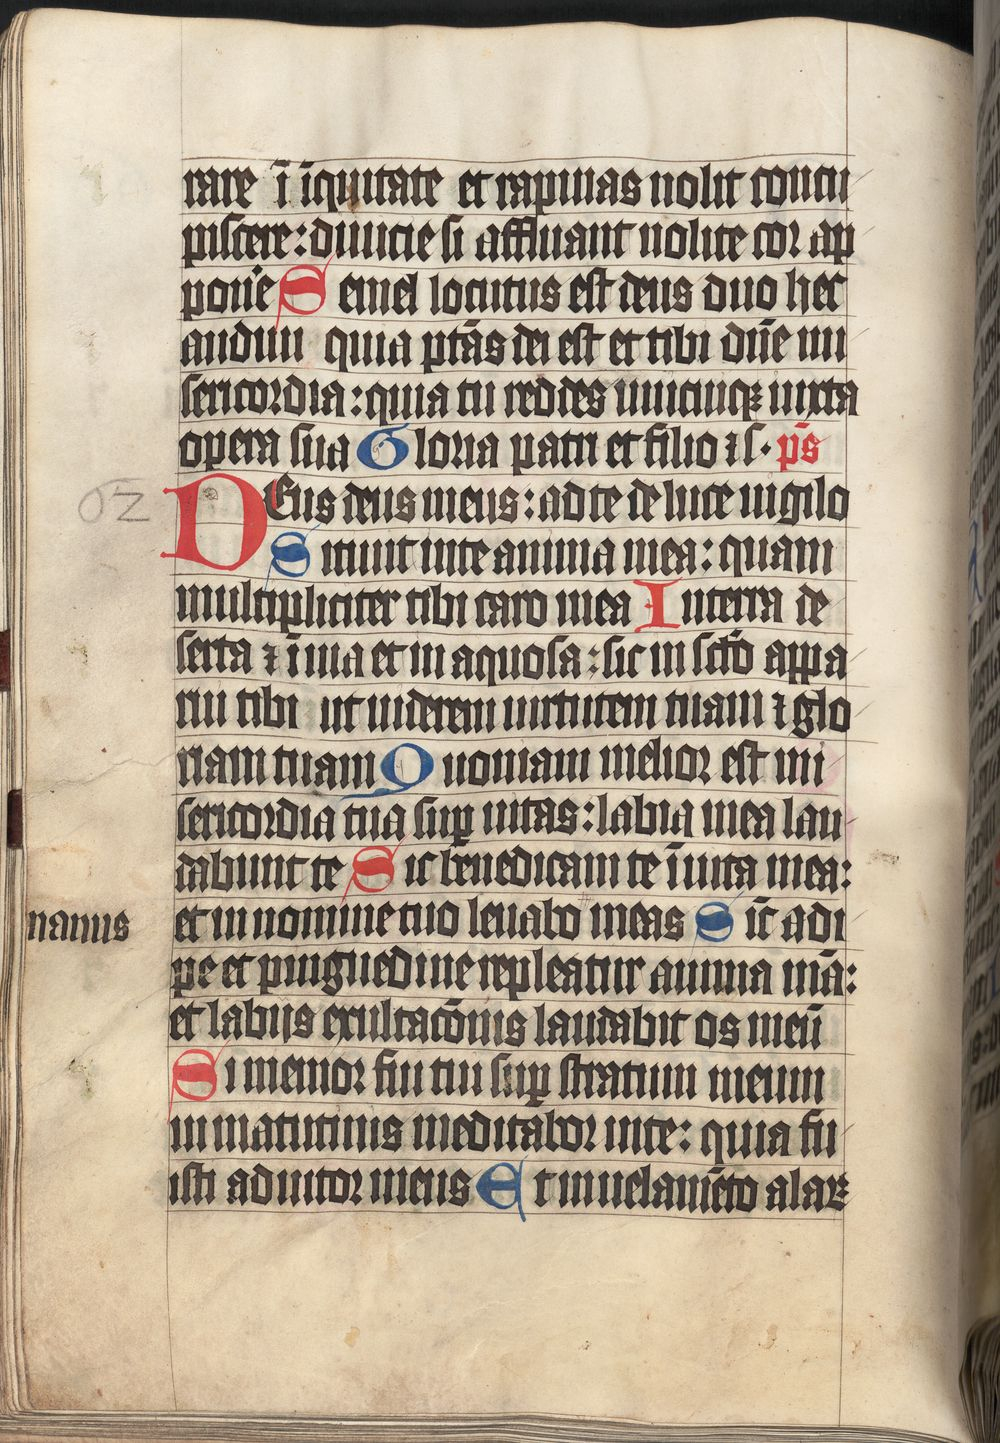 rare ī iquitate et rapinas nolit concu
piscere: diuicie si affluant nolite cor ap
poñe Semel locutus est deus duo hec
audiui quia ptās dei est et tibi dñe mi
sericordia: quia tu reddes unicuiqꝫ iuxta
opera sua Gloria patri et filio ⁊ s. ps̄
DEus deus meus: ad te de luce uigilo
62
Sitiuit in te anima mea: quam
multipliciter tibi caro mea In terra de
serta ⁊ īuia et in aquosa: sic in sct̄o appa
rui tibi ut uiderem uirtutem tuam ⁊ glo
riam tuam Quoniam melior est mi
sericordia tua suꝑ uitas: labia mea lau
dabunt te Sic benedicam te ī uita mea:
et in nomine tuo leuabo meas Sic̄ adi
manus
pe et pinguedine repleatur anima mēa:
et labijs exultacōnis laudabit os meū
Si memor fui tui suꝑ stratum meum
in matutinis meditabor in te: quia fu
isti adiutor meus Et in uelamēto alaꝝ